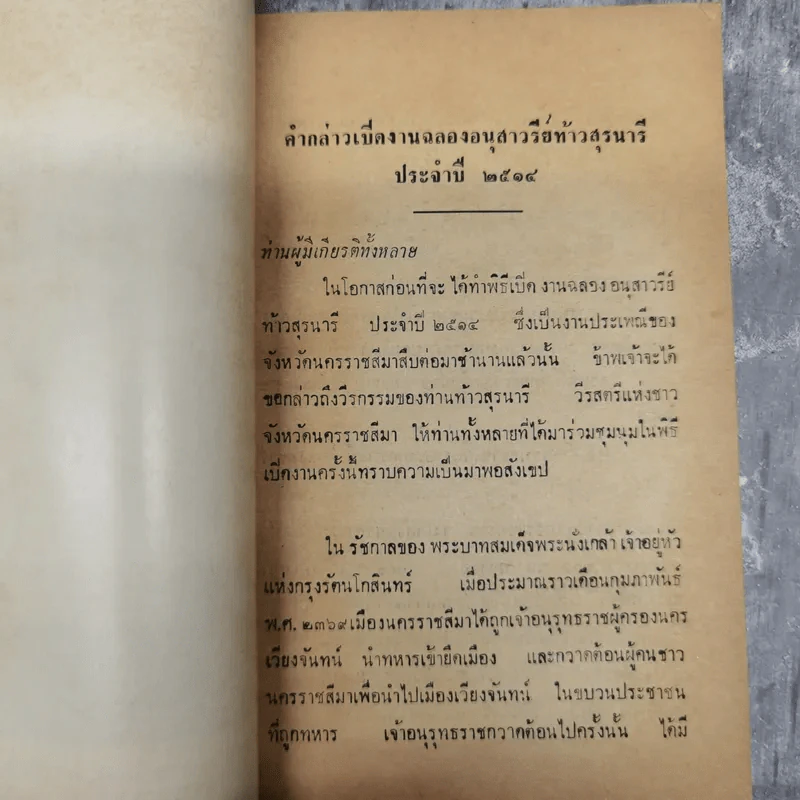 คำกล่าวเปิดงานฉลองอนุสาวรีย์ท้าวสุรนารี
ประจำปี ๒๕๑๔
ท่านผู้มีเกียรติทั้งหลาย
ในโอกาสก่อนที่จะ ได้ทำพิธีเปิด งานฉลอง อนุสาวรีย์
ท้าวสุรนารี ประจำปี ๒๕๑๔ ซึ่งเป็นงานประเพณีของ
จังหวัดนครราชสีมาสืบต่อมาช้านานแล้วนั้น ข้าพเจ้าจะได้
ขอกล่าวถึงวีรกรรมของท่านท้าวสุรนารี วีรสตรีแห่งชาว
จังหวัดนครราชสีมา ให้ท่านทั้งหลายที่ได้มาร่วมชุมนุมในพิธี
เปิดงานครั้งนี้ทราบความเป็นมาพอสังเขป
ใน รัชกาลของ พระบาทสมเด็จพระนั่งเกล้า เจ้าอยู่หัว
แห่งกรุงรัตนโกสินทร์ เมื่อประมาณราวเดือนกุมภาพันธ์
พ.ศ. ๒๓๖๙ เมืองนครราชสีมาได้ถูกเจ้าอนุรุทธราชผู้ครองนคร
เวียงจันทน์ นำทหารเข้ายึดเมือง และกวาดต้อนผู้คนชาว
นครราชสีมาเพื่อนำไปเมืองเวียงจันทน์ ในขบวนประชาชน
ที่ถูกทหาร เจ้าอนุรุทธราชกวาดต้อนไปครั้งนั้น ได้มี